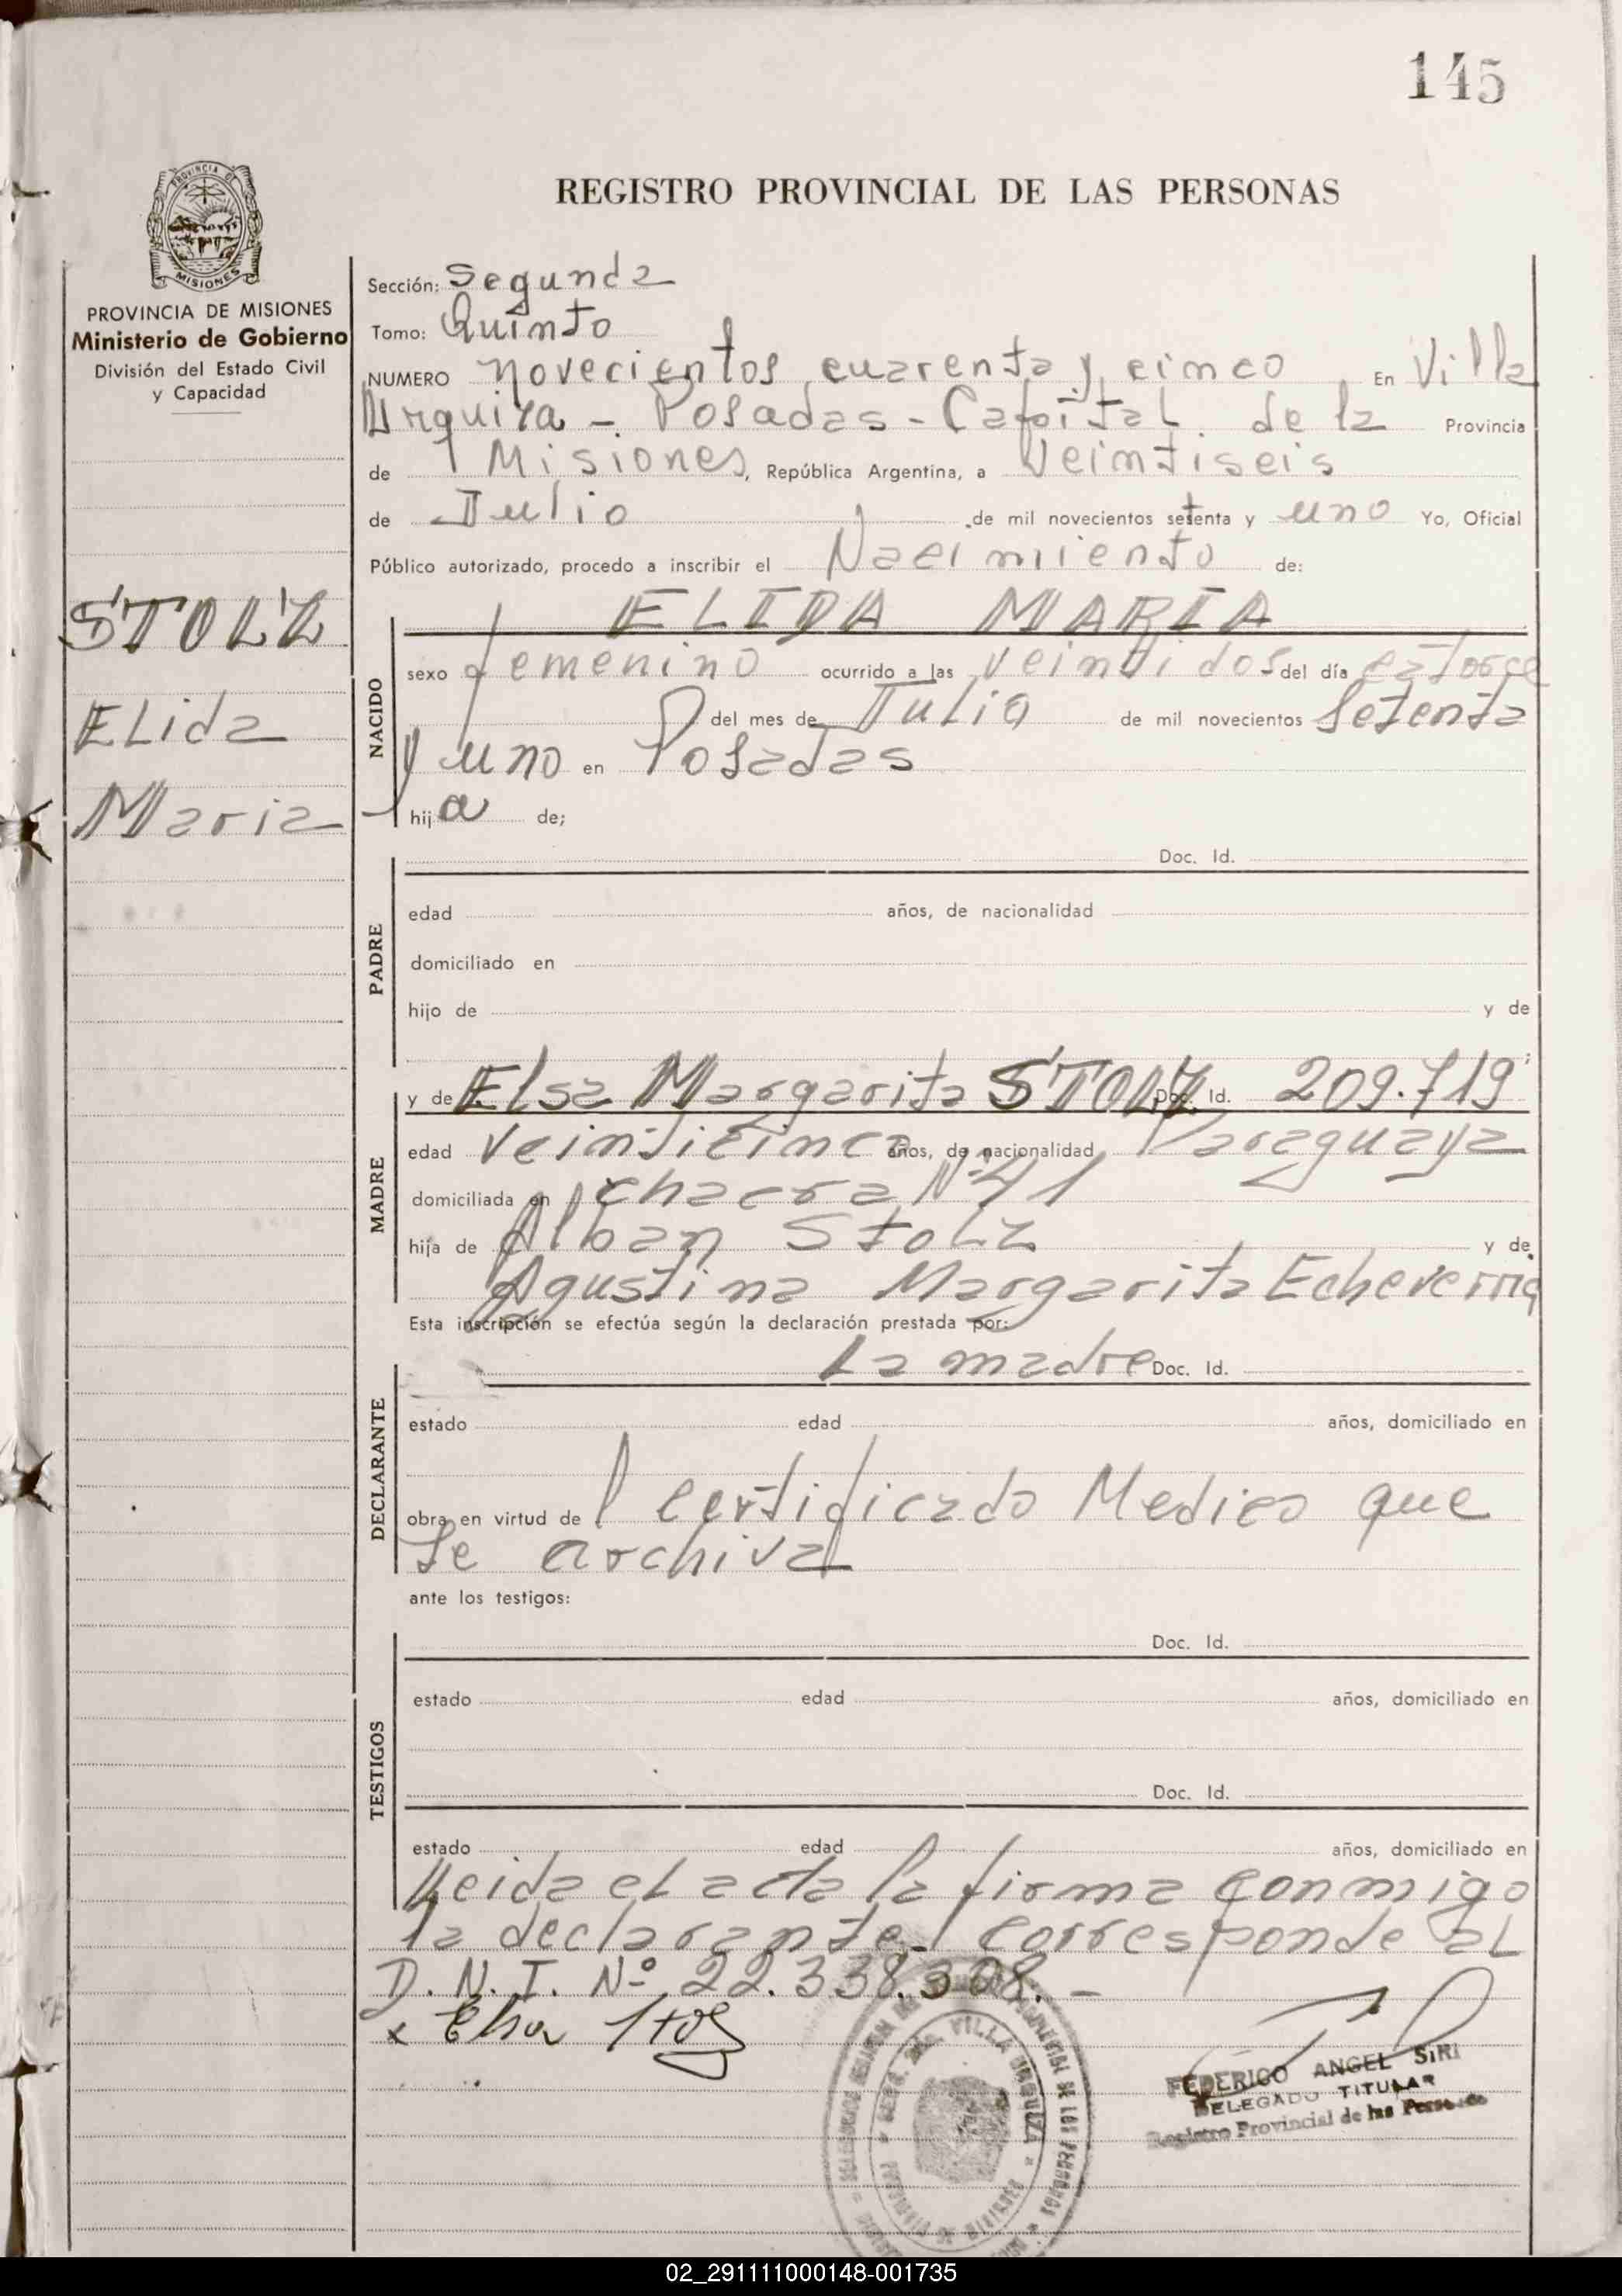 145
REGISTRO PROVINCIAL DE LAS PERSONAS
PROVINCIA DE MISIONES
Ministerio de Gobierno
División del Estado Civil
y Capacidad
STOLZ
Elida
Maria
Sección: Segunda
Tomo: Quinto
NUMERO novecientos cuarenta y cinco En Villa
Urquiza - Posadas - Capital de la Provincia
de Misiones, República Argentina, a Veintiseis
de Julio de mil novecientos setenta y uno Yo, Oficial
Público autorizado, procedo a inscribir el Nacimiento de:
ELIDA MARIA
NACIDO
sexo femenino ocurrido a las veintidos del día catorce
del mes de Julio de mil novecientos setenta
y uno en Posadas
hija de;
PADRE
Doc. Id.
edad años, de nacionalidad
domiciliado en
hijo de y de
;
MADRE
y de Elsa Margarita STOLZ Doc. Id. 209.719
edad veinticinco años, de nacionalidad Paraguaya
domiciliada en chacra Nº 41
hija de Alban Stolz y de
Agustina Margarita Echeverria
Esta inscripción se efectúa según la declaración prestada por:
DECLARANTE
La madre Doc. Id.
estado edad años, domiciliado en
obra en virtud del certificado Medico que
se archiva
ante los testigos:
TESTIGOS
Doc. Id.
estado edad años, domiciliado en
Doc. Id.
estado edad años, domiciliado en
Leida el acta la firma conmigo
la declarante. Corresponde al
D. N. I. Nº 22.338.308.-
x Elsa Stolz
VILLA URQUIZA
FEDERICO ANGEL SIRI
DELEGADO TITULAR
Registro Provincial de las Personas
02_291111000148-001735